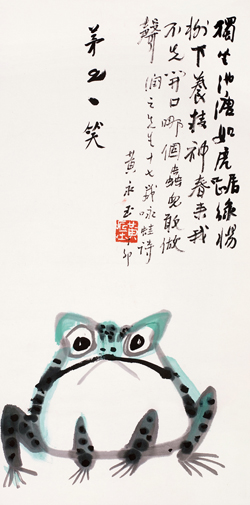 獨坐池塘如虎踞綠楊
樹下養精神春來我
不先開口哪個蟲兒敢做
聲 潤之先生十七歲咏蛙詩
黃永玉
卯
笑